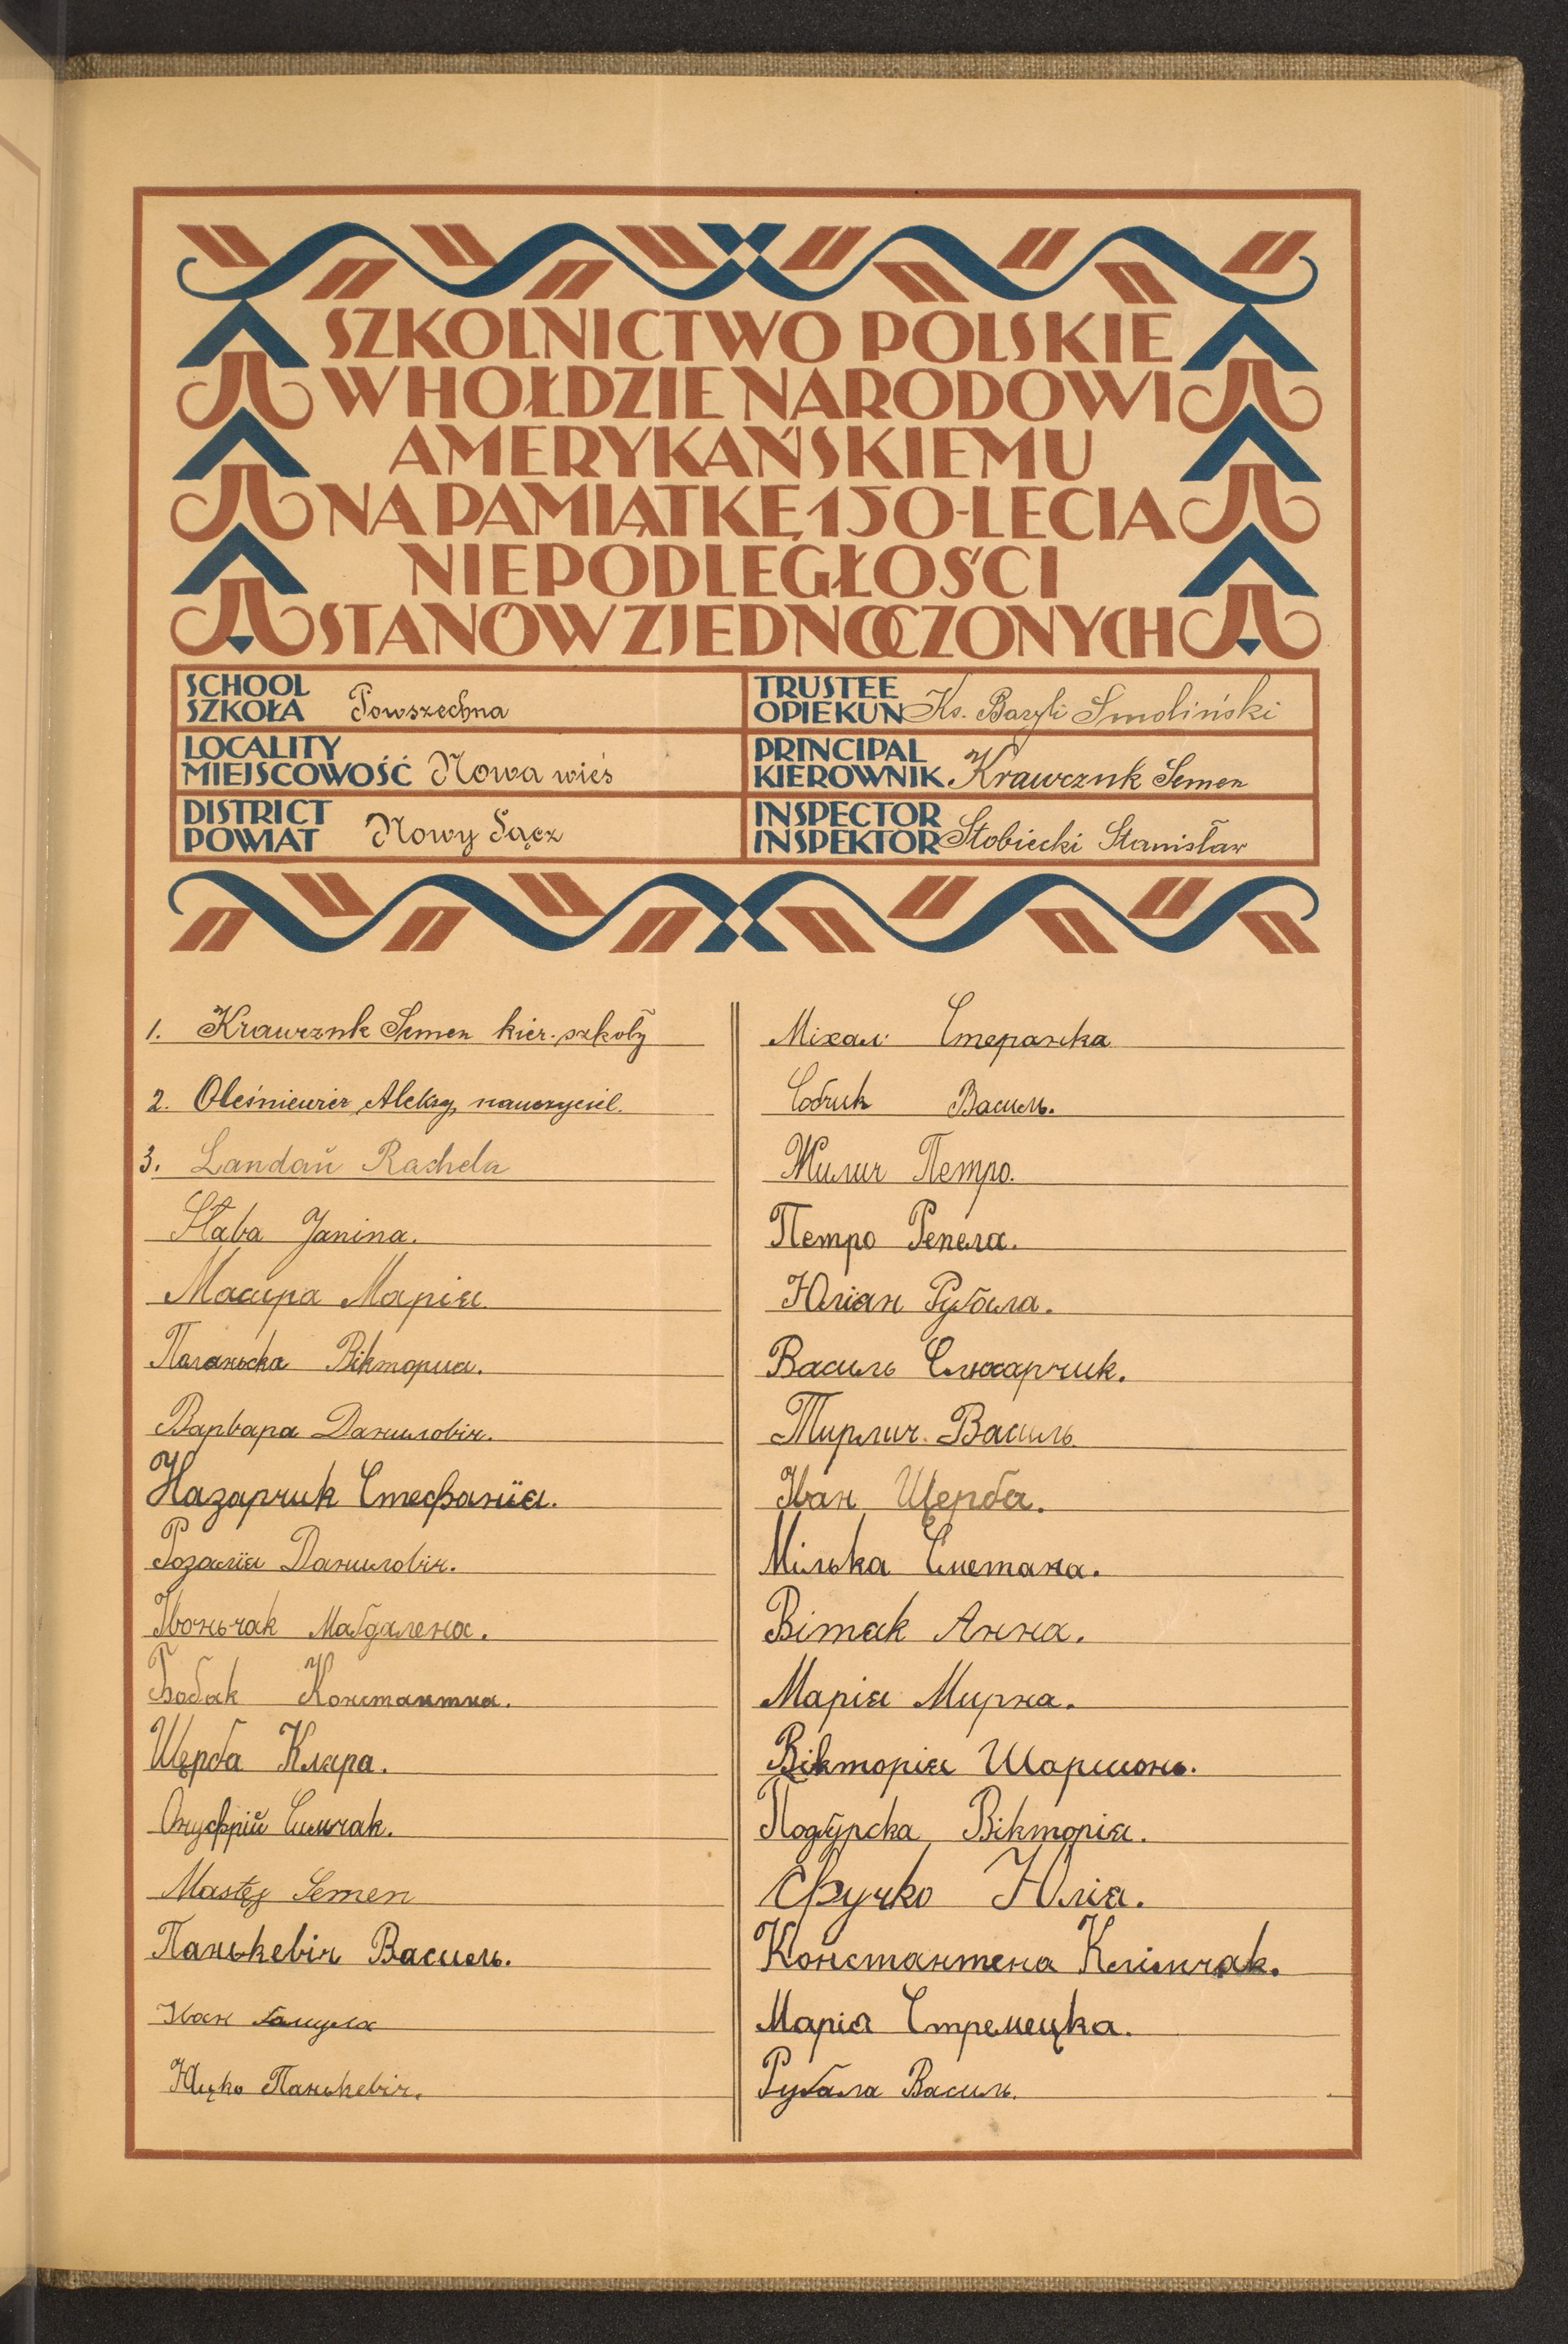 SZKOLNICTWO POLSKIE
W HOŁDZIE NARODOWI
AMERYKAŃSKIEMU
NA PAMIĄTKĘ 150-LECIA
NIEPODLEGŁOŚCI
STANÓW ZJEDNOCZONYCH
SCHOOL
SZKOŁA Powszechna
LOCALITY
MIEJSCOWOŚĆ Nowa wieś
DISTRICT
POWIAT Nowy Sącz
TRUSTEE
OPIEKUN Ks. Bazyli Smoliński
PRINCIPAL
KIEROWNIK. Krawczuk Semen
INSPECTOR
INSPEKTOR Stobiecki Stanisław
1. Krawczuk Semen kier. szkoły
2. Oleśniewicz Aleksy, nauczyciel.
3. Landau Rachela
Słaba Janina.
Марія
Поланьска Вікториа.
Варвара Данилович.
Назарчик Стефанїя.
Розалїя Данилович.
Івоньчак Маґдалена.
Бобак
Щерба Кляра.
Онуфрій Симчак.
Mastej Semen
Панькевіч Василь.
Іван
Юцко Панькевіч.
Міхал
Собчик Василь.
Жилич Петро.
Петро Репела.
Юліан Рубала.
Василь Слюсарчик.
Тирлич Василь.
Іван Щерба.
Мілька Сметана.
Вітяк Анна.
Марія Мирна.
Вікторія
Вікторія.
Фучко Юлія.
Константена Клімчак.
Марія Стремецка.
Рубала Василь.